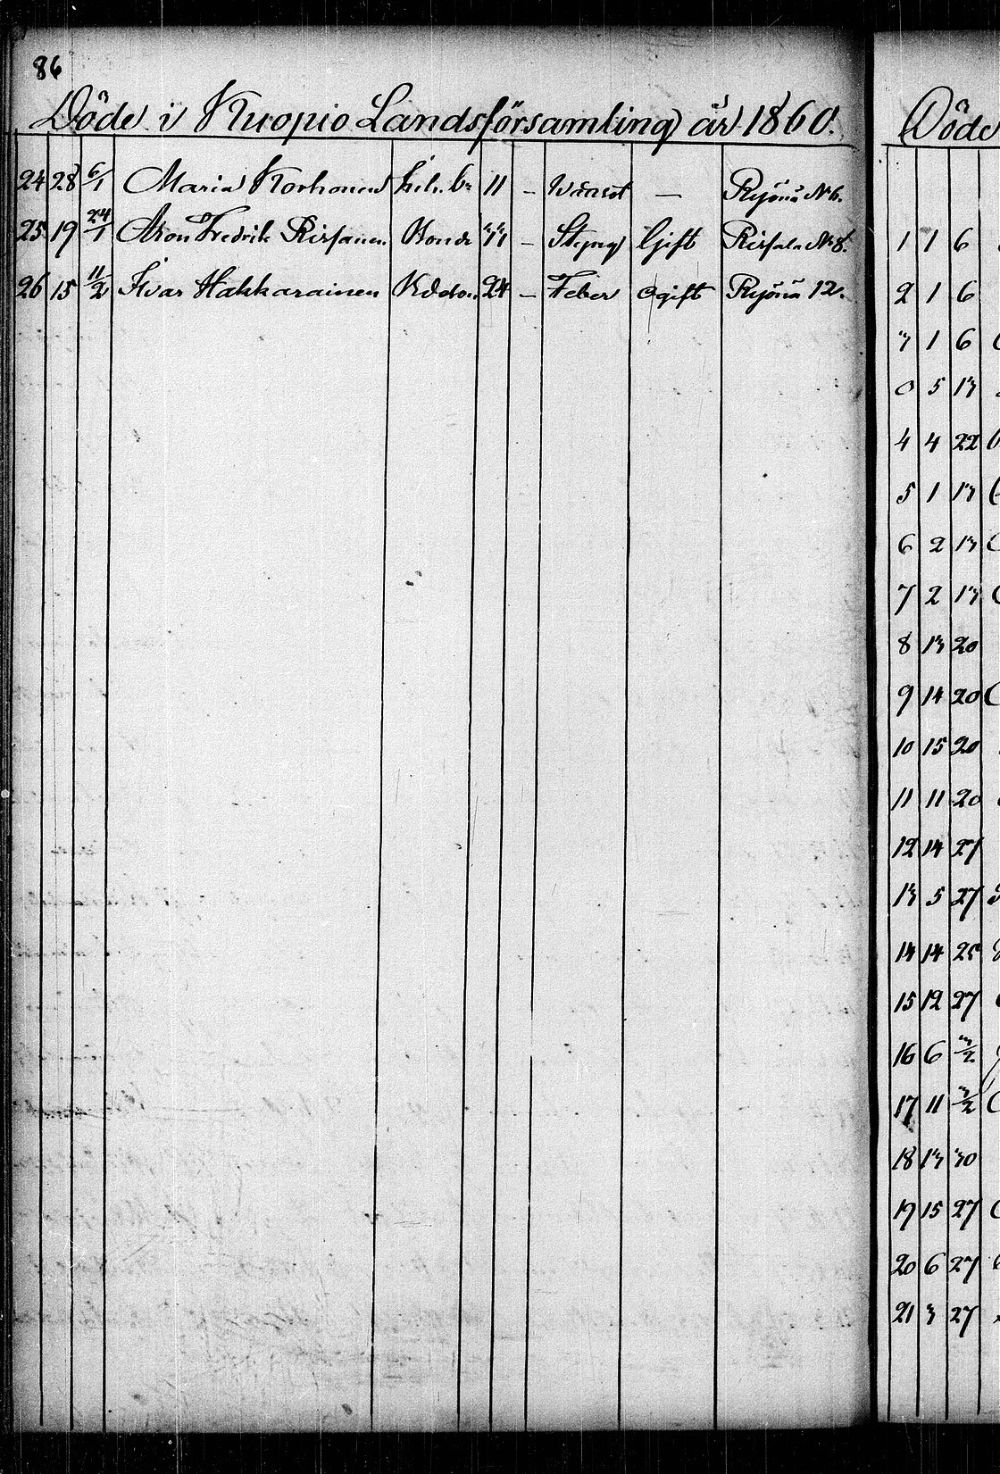 86
Döde i Kuopio Landsförsamling år 1860.
24 28 6/1 Maria Korhonen Inh. 11 – – Ryönä N 6.
25 19 24/1 Aron Fredrik Rissanen Bonde 33 – Gift Rissala No 8.
26 15 11/2 Ivar Hakkarainen 24 – Feber ogift Ryönä 12.
Döde
1 1 6
2 1 6
3 1 6
0 5 13
4 4 22
5 1 13
6 2 13
7 2 13
8 13 20
9 14 20
10 15 20
11 11 20
12 14 27
13 5 27
14 14 25
15 12 27
16 6 3/2
17 11 3/2
18 13 30
19 15 27
20 6 27
21 3 27